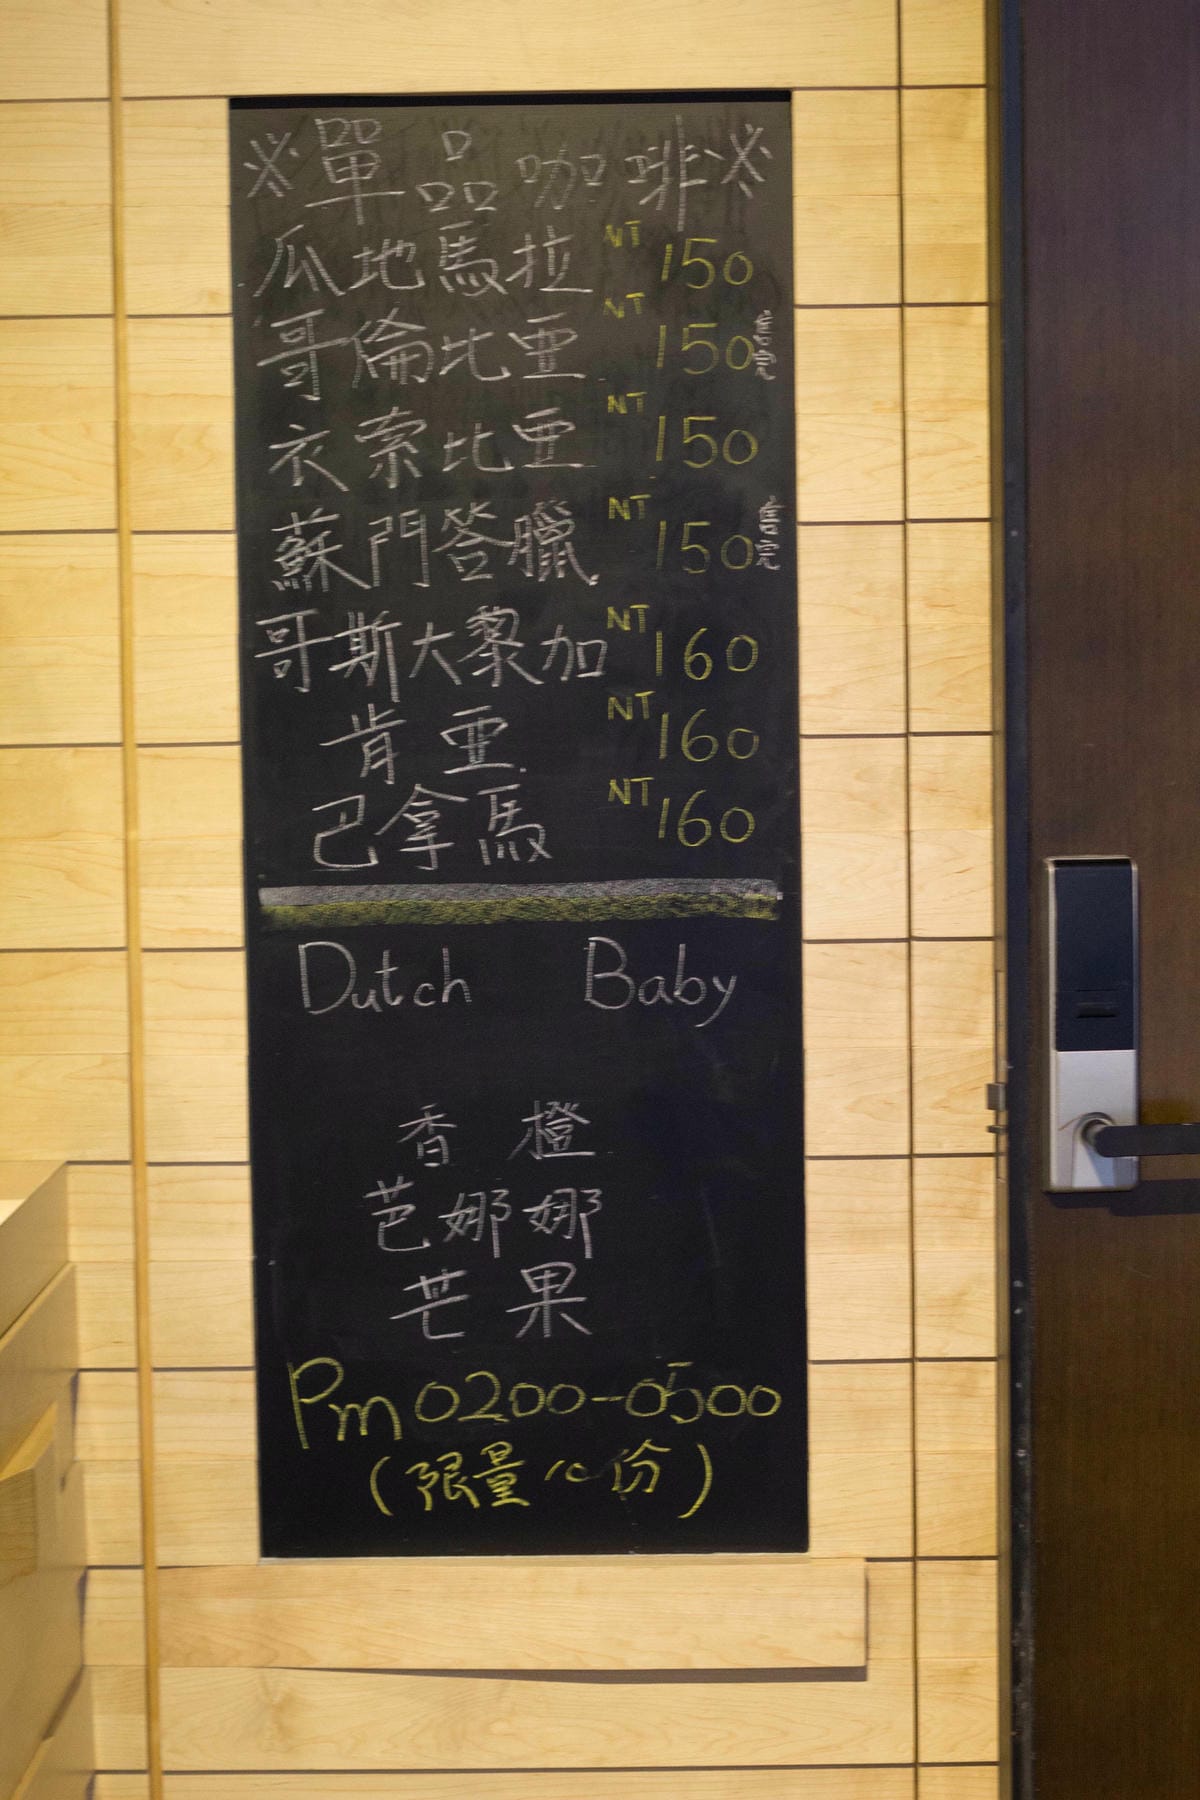 ※單品咖啡※
瓜地馬拉 NT 150
哥倫比亞 NT 150
衣索比亞 NT 150
蘇門答臘 NT 150
哥斯大黎加 NT 160
肯亞 NT 160
巴拿馬 NT 160
Dutch Baby
香橙
芭娜娜
芒果
Pm 0200-0500
(限量 份)